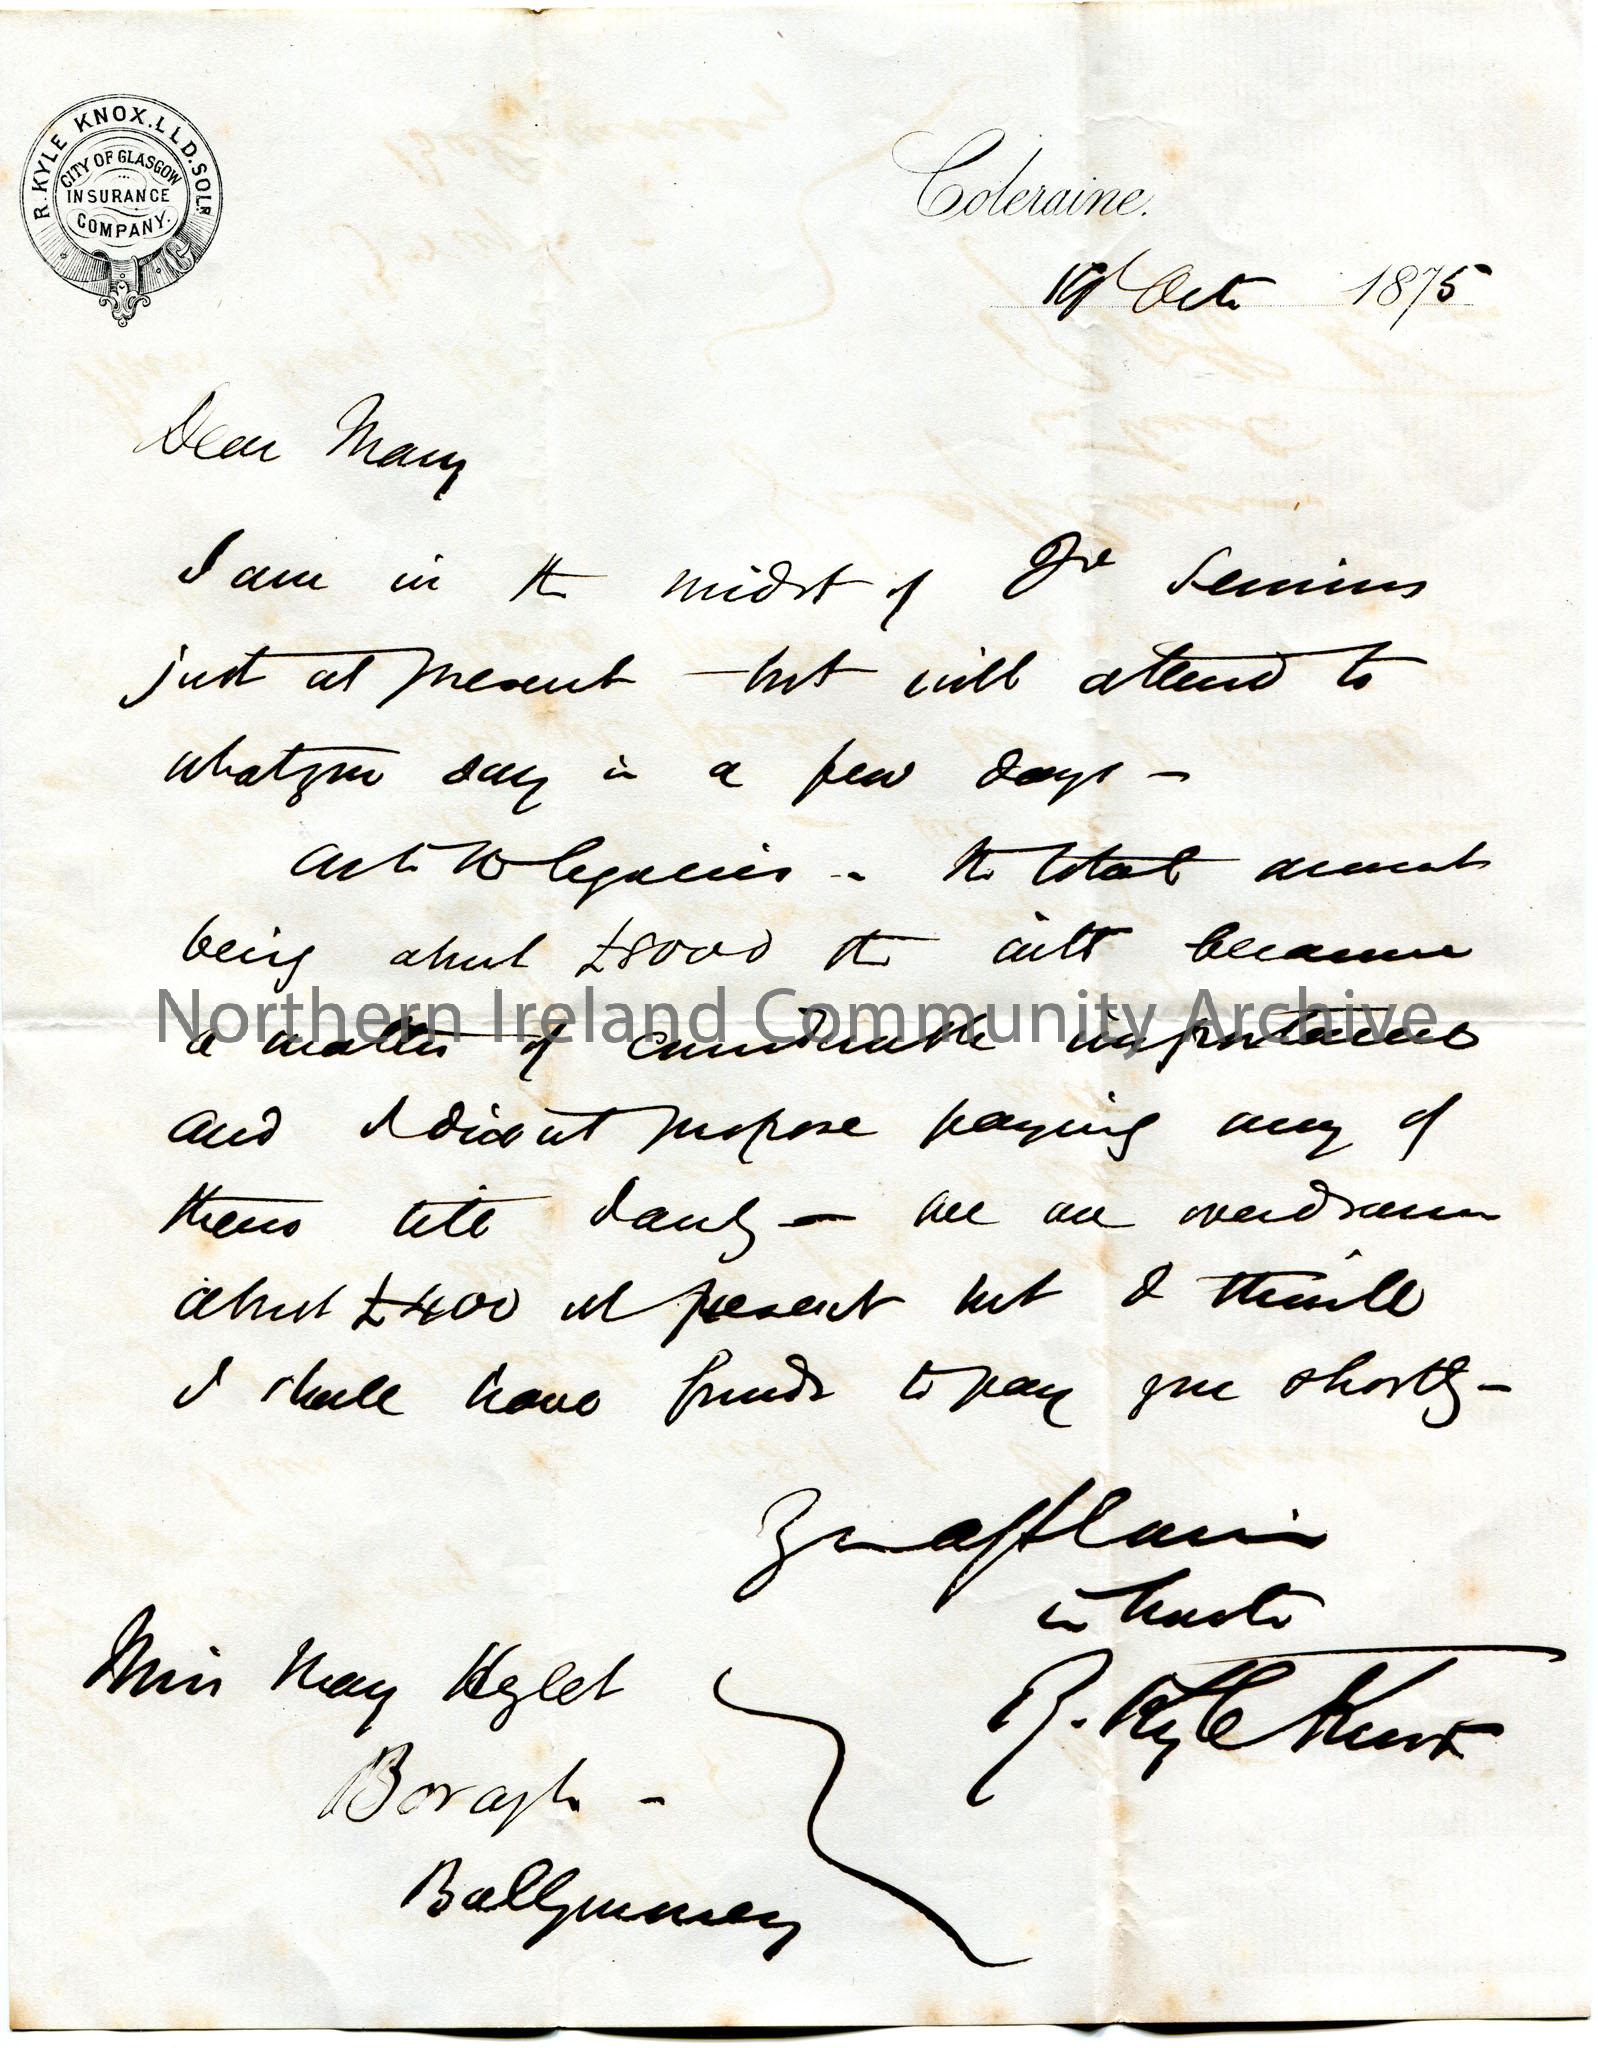 R. KYLE KNOX. LLD. SOLR
CITY OF GLASGOW
INSURANCE
COMPANY.
Coleraine.
19 Octr 1875
Dear Mary
I am in the midst of Qr Sessions
just at present - but will attend to
what you say in a few days -
As to the legacies - the total amount
being about £8000 the interest became
a matter of considerable importance
Northern Ireland Community Archive
and I did not propose paying any of
them till January - we are overdrawn
about £400 at present but I think
I shall have funds to pay you shortly -
in haste
R. Kyle Knox
Miss May Hezlet
Boragh -